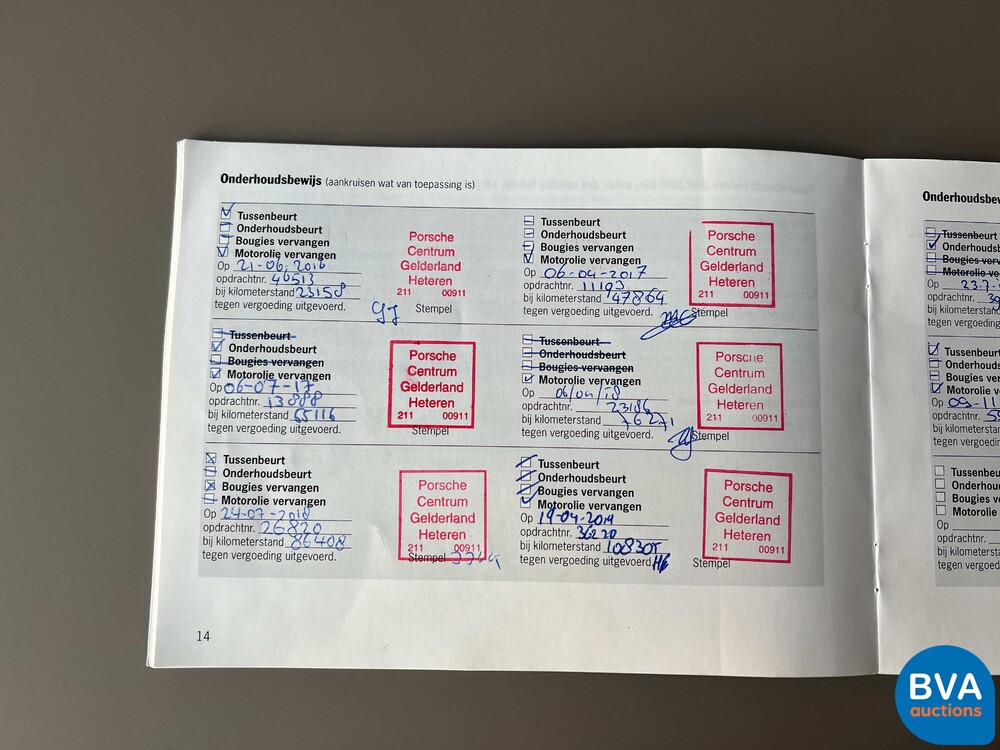 Onderhoudsbewijs (aankruisen wat van toepassing is)
Tussenbeurt
Onderhoudsbeurt
Bougies vervangen
Motorolie vervangen
Op 21-06-2016
opdrachtnr. 46513
bij kilometerstand 23158
tegen vergoeding uitgevoerd.
Porsche
Centrum
Gelderland
Heteren
211 00911
Stempel
Tussenbeurt
Onderhoudsbeurt
Bougies vervangen
Motorolie vervangen
Op 06-04-2017
opdrachtnr. 11193
bij kilometerstand 47864
tegen vergoeding uitgevoerd.
Porsche
Centrum
Gelderland
Heteren
211 00911
Stempel
Tussenbeurt
Onderhoudsbeurt
Bougies vervangen
Motorolie vervangen
Op 06-07-17
opdrachtnr. 13888
bij kilometerstand 55116
tegen vergoeding uitgevoerd.
Porsche
Centrum
Gelderland
Heteren
211 00911
Stempel
Tussenbeurt
Onderhoudsbeurt
Bougies vervangen
Motorolie vervangen
Op 06/04/18
opdrachtnr. 23186
bij kilometerstand 76271
tegen vergoeding uitgevoerd.
Porsche
Centrum
Gelderland
Heteren
211 00911
Stempel
Tussenbeurt
Onderhoudsbeurt
Bougies vervangen
Motorolie vervangen
Op 24-07-2018
opdrachtnr. 26820
bij kilometerstand 86408
tegen vergoeding uitgevoerd.
Porsche
Centrum
Gelderland
Heteren
211 00911
Stempel
Tussenbeurt
Onderhoudsbeurt
Bougies vervangen
Motorolie vervangen
Op 19-04-2019
opdrachtnr. 36220
bij kilometerstand 108305
tegen vergoeding uitgevoerd.
Porsche
Centrum
Gelderland
Heteren
211 00911
Stempel
14
Onderhoudsbew
Tussenbeurt
Onderhoudsb
Bougies ver
Motorolie ve
Op 23.7.
opdrachtnr.
bij kilometersta
tegen vergoeding
Tussenbeurt
Onderhouds
Bougies ver
Motorolie v
Op 09-11
opdrachtnr.
bij kilometerst
tegen vergoedin
Tussenbeu
Onderhoud
Bougies v
Motorolie
Op
opdrachtnr.
bij kilometers
tegen vergoed
BVA
auctions